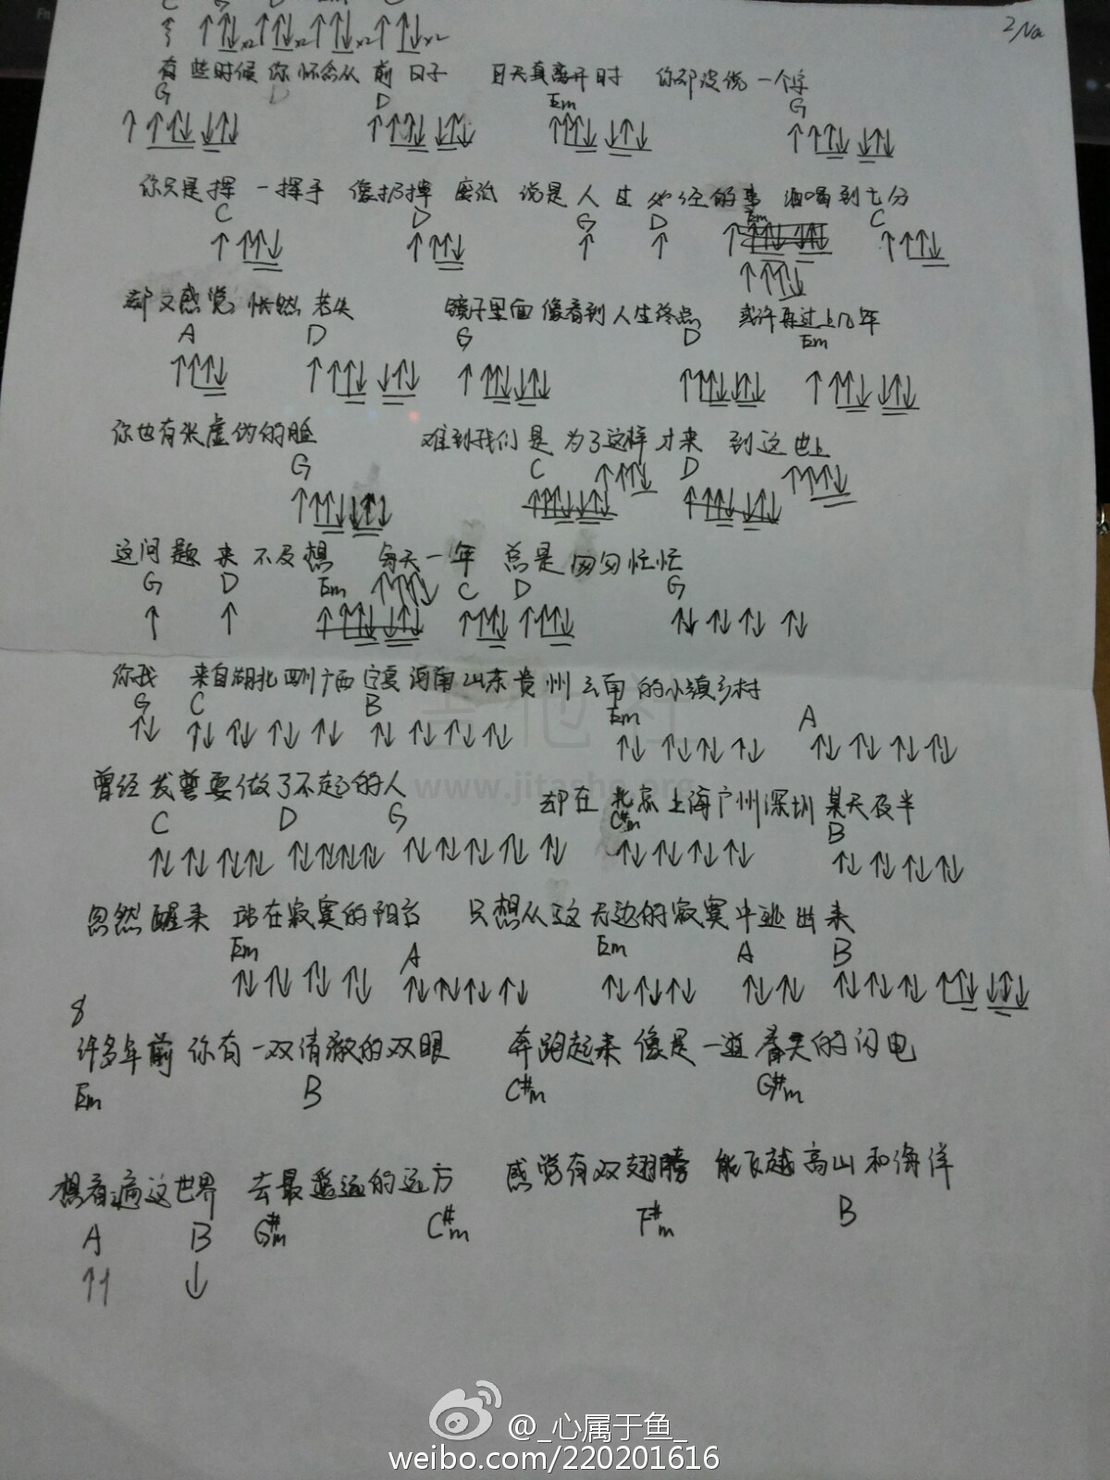 2/Na
×2 ×2 ×2 ×2
有些时候 你怀念从前日子 日天真离开时 你却没说一个字
G D D Em G
你只是挥一挥手 像扔掉废纸 说是人过必经的事 酒喝到七分
C D G D Em C
却又感觉怅然老失 镜子里面像看到人生终点 或许再过上几年
A D G D Em
你也有张虚伪的脸 难到我们是为了这样才来到这世上
G C D
这问题来不及想 每天一年总是匆匆忙忙
G D Em C D G
你我 来自湖北四川广西宁夏河南山东贵州云南的小镇乡村
G C B Em A
曾经发誓要做了不起的人 却在北京上海广州深圳某天夜半
C D G C#m B
忽然醒来 站在寂寞的阳台 只想从这无边的寂寞中逃出来
Em A Em A B
8
许多年前你有一双清澈的双眼 奔跑起来像是一道春天的闪电
Em B C#m G#m
想看遍这世界 去最遥远的远方 感觉有双翅膀 能飞越高山和海洋
A B G#m C#m F#m B
吉他社
www.jitashe.org
@_心属于鱼_
weibo.com/220201616